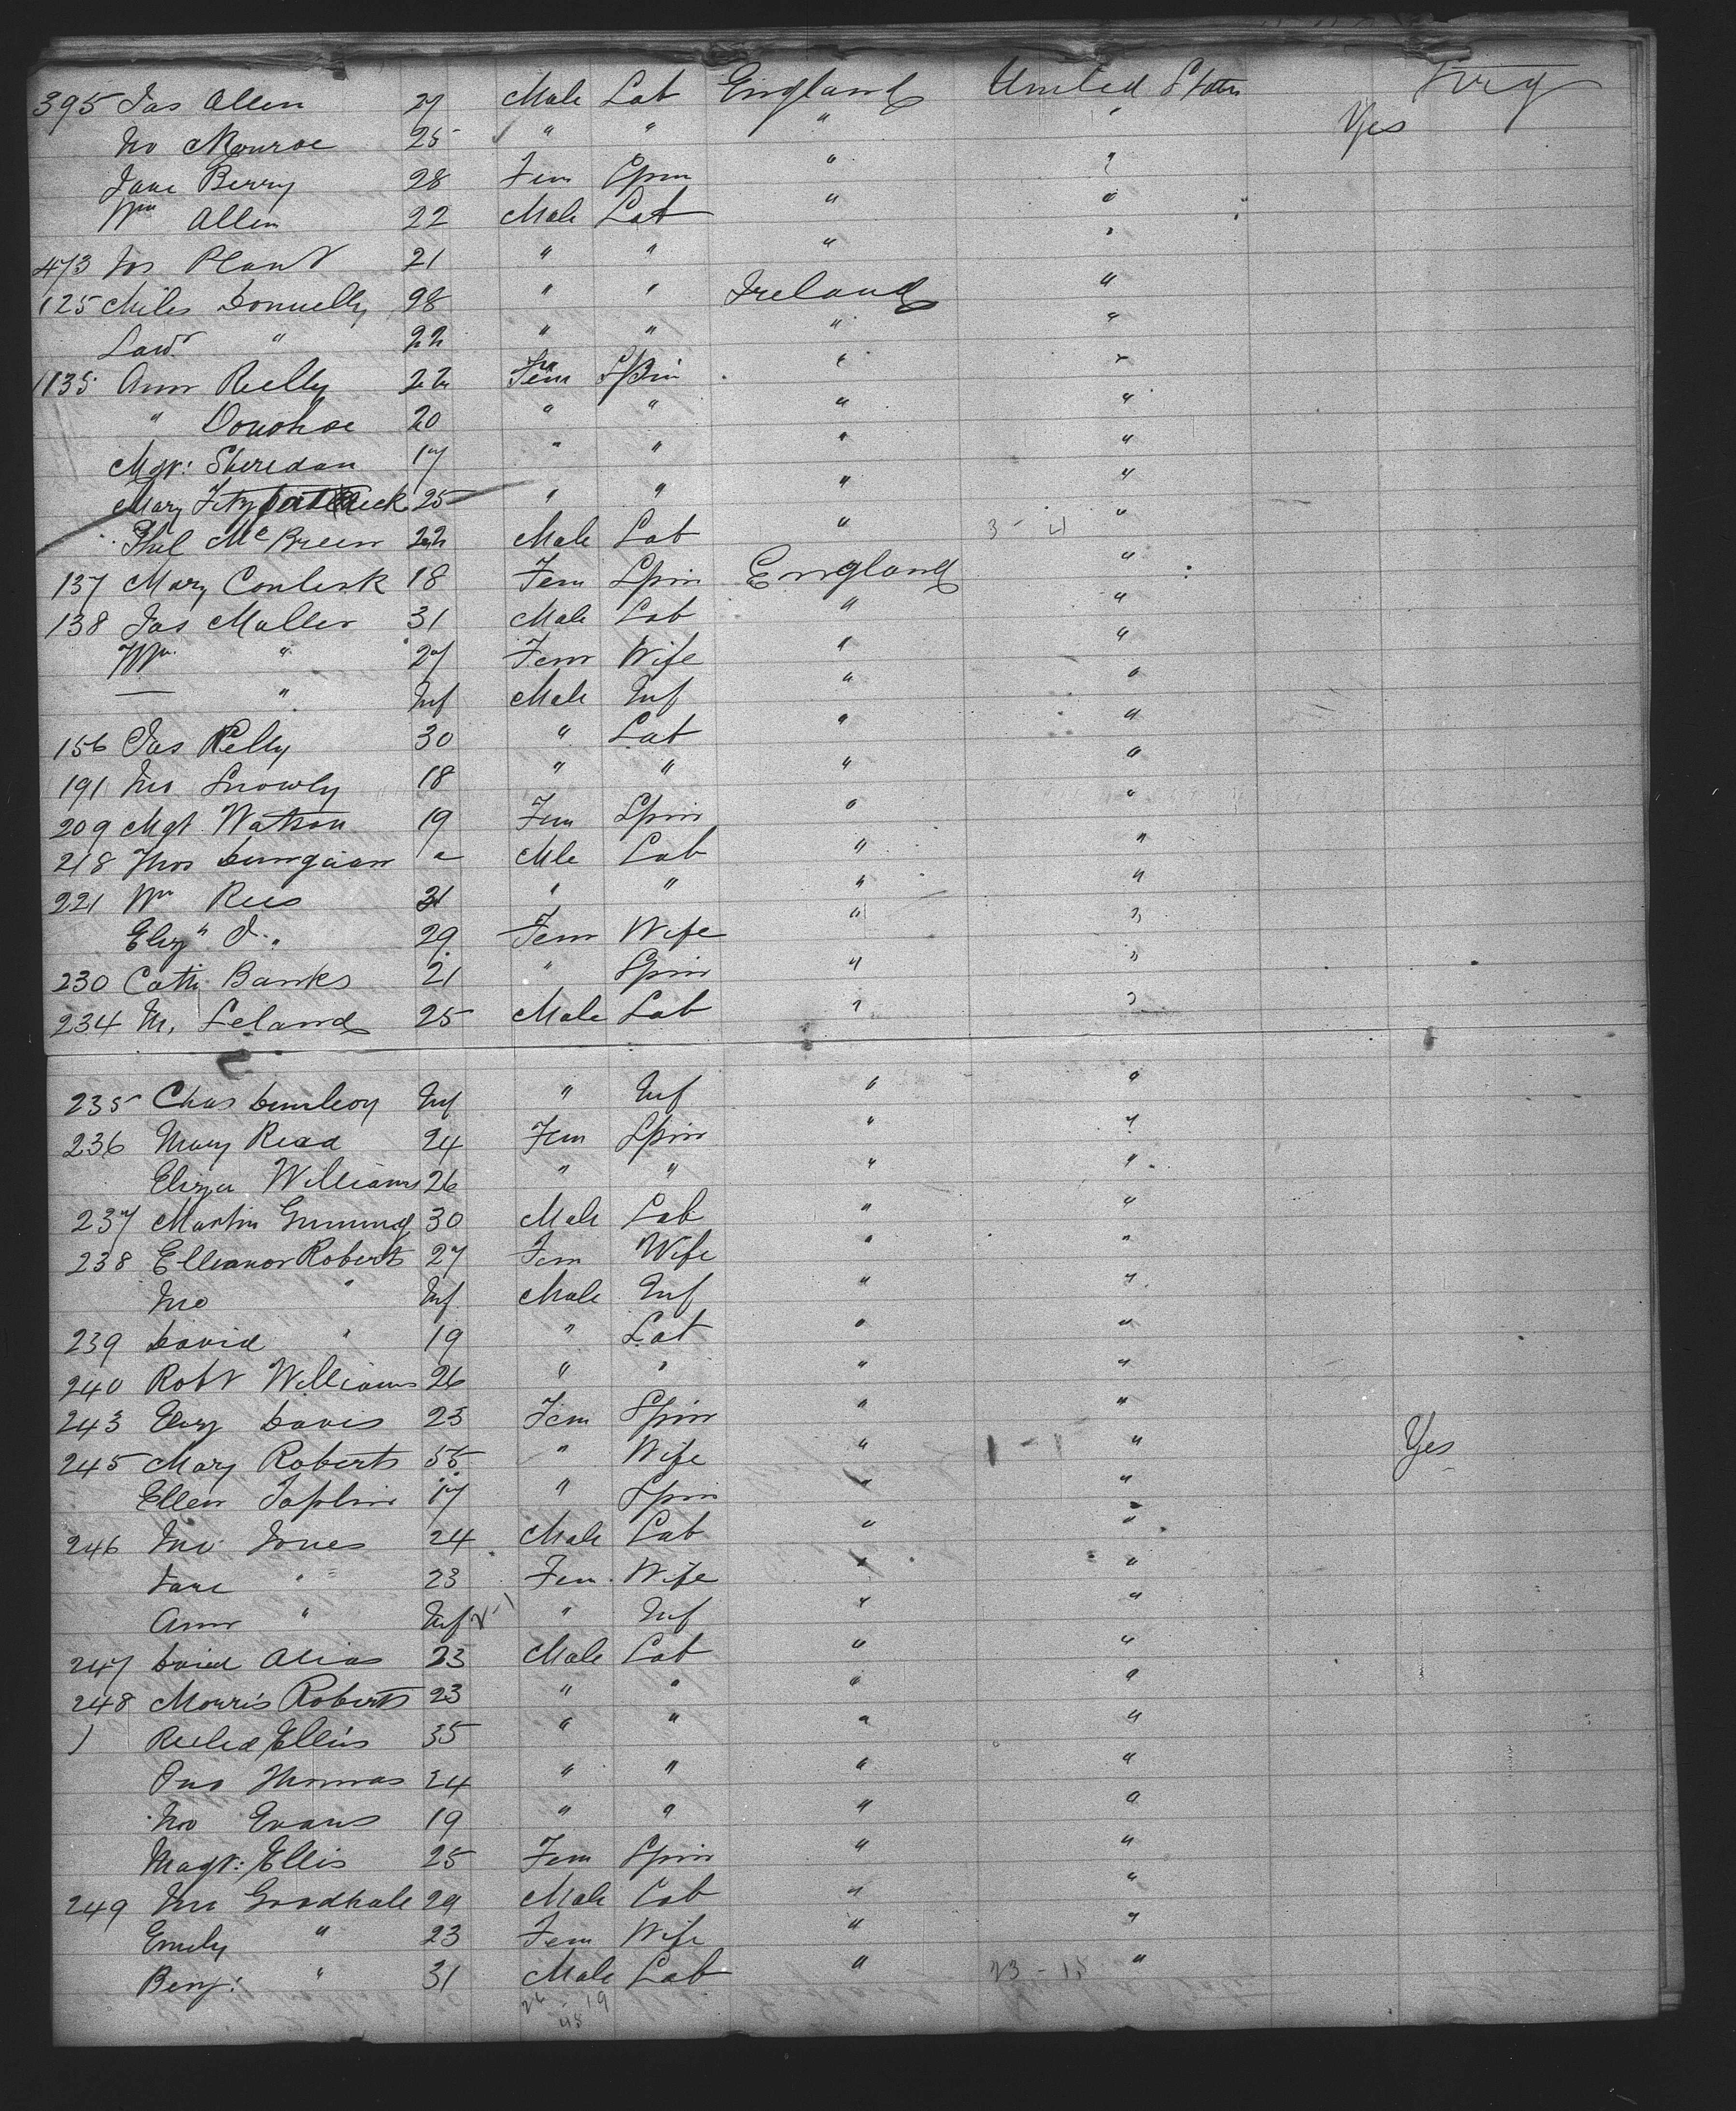 395 Jas Allen 27 Male Lab England United States Frig
Jno Monroe 25 " " " " Yes
Jane Berry 28 Fem Spin " "
Wm Allen 22 Male Lab " "
473 Jos Plant 21 " " " "
125 Miles Donnelly 28 " " Ireland "
Lawr " 22 " " " "
1135 Ann Reilly 22 Fem Spin " "
" Donohoe 20 " " " "
Mgt: Sheredan 17 " " " "
Mary Fitzpatrick 25 " " " "
Phil McBreen 22 Male Lab " 3 - 4 "
137 Mary Conlisk 18 Fem Spin England "
138 Jas Muller 31 Male Lab " "
Mrs " 27 Fem Wife " "
— " Inf Male Inf " "
156 Jas Kelly 30 " Lab " "
191 Jno Snowly 18 " " " "
209 Mgt. Watson 19 Fem Spin " "
218 Thos Dungaan a Mle Lab " "
221 Wm Rees 31 " " " "
Eliz " J. " 29 Fem Wife " "
230 Cath. Banks 21 " Spin " "
234 M. Leland 25 Male Lab " "
235 Chas Inf " Inf " "
236 Mary Read 24 Fem Spin " "
Eliza Williams 26 " " " "
237 Martin 30 Male Lab " "
238 Elleanor Roberts 27 Fem Wife " "
Jno " Inf Male Inf " "
239 David " 19 " Lab " "
240 Robt Williams 26 " " " "
243 Eliz Davis 23 Fem Spin " "
245 Mary Roberts 55 " Wife " 1 - 1 " Yes
Ellen Taplin 17 " Spin " "
246 Jno Jones 24 Male Lab " "
Jane " 23 Fem Wife " "
Ann " Inf " Inf " "
247 David Alias 23 Male Lab " "
248 Morris Roberts 23 " " " "
) Richd Ellis 35 " " " "
Jno Thomas 24 " " " "
Jno Evans 19 " " " "
Magt: Ellis 25 Fem Spin " "
249 Jno Goodhale 29 Male Lab " "
Emily " 23 Fem Wife " "
Benj: " 31 Male Lab " 23 - 15 "
26 - 19
45